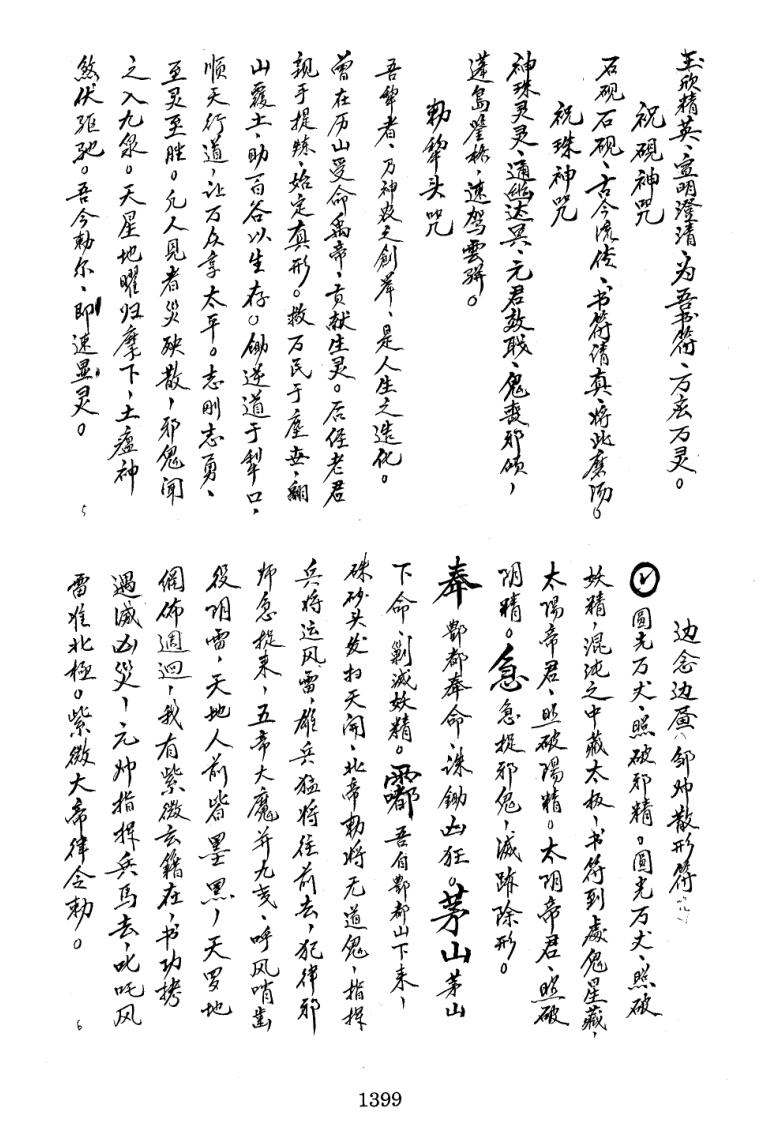 玉欣精英、宣明澄清、为吾书符、万玄万灵。
祝砚神咒
石砚石砚、古今流传、书符请真、将此磨汤。
祝珠神咒
神珠灵灵、通幽达冥、元君效职、鬼丧邪倾，
蓬岛登格，速驾雲骈。
勅犂头咒
吾犂者、乃神农之創举、是人生之造化。
曾在历山受命禹帝、贡献生灵。后经老君
親手提炼、始定真形。救万民于塵世、翻
山覆土、助百谷以生存。锄逆道于犁口，
顺天行道，让万众享太平。志刚志勇、
至灵至胜。凡人見者災殃散，邪鬼闻
之入九泉。天星地曜归麾下，土瘟神
煞伏驱驰。吾今勅尔、即速显灵。
5
边念边画（邹帅散形符
圓光万丈、照破邪精。圓光万丈、照破
妖精，混沌之中藏太极，书符到處鬼星藏，
太陽帝君、照破陽精。太阴帝君、照破
阴精。急急捉邪鬼，滅跡除形。
奉酆都奉命、诛锄凶狂。茅山茅山
下命、剿滅妖精。嘟吾自酆都山下来，
硃砂头发扫天開、北帝勅将无道鬼，指揮
兵将运风雷，雄兵猛将往前去，犯律邪
师急捉来，五帝大魔并九夷、呼风哨齒
役阴雷，天地人前皆墨黑，天罗地
網佈週迴，我有紫微玄籍在，书功拷
遇滅凶災，元帅指揮兵马去，叱吒风
雷准北極。紫微大帝律令勅。
6
1399